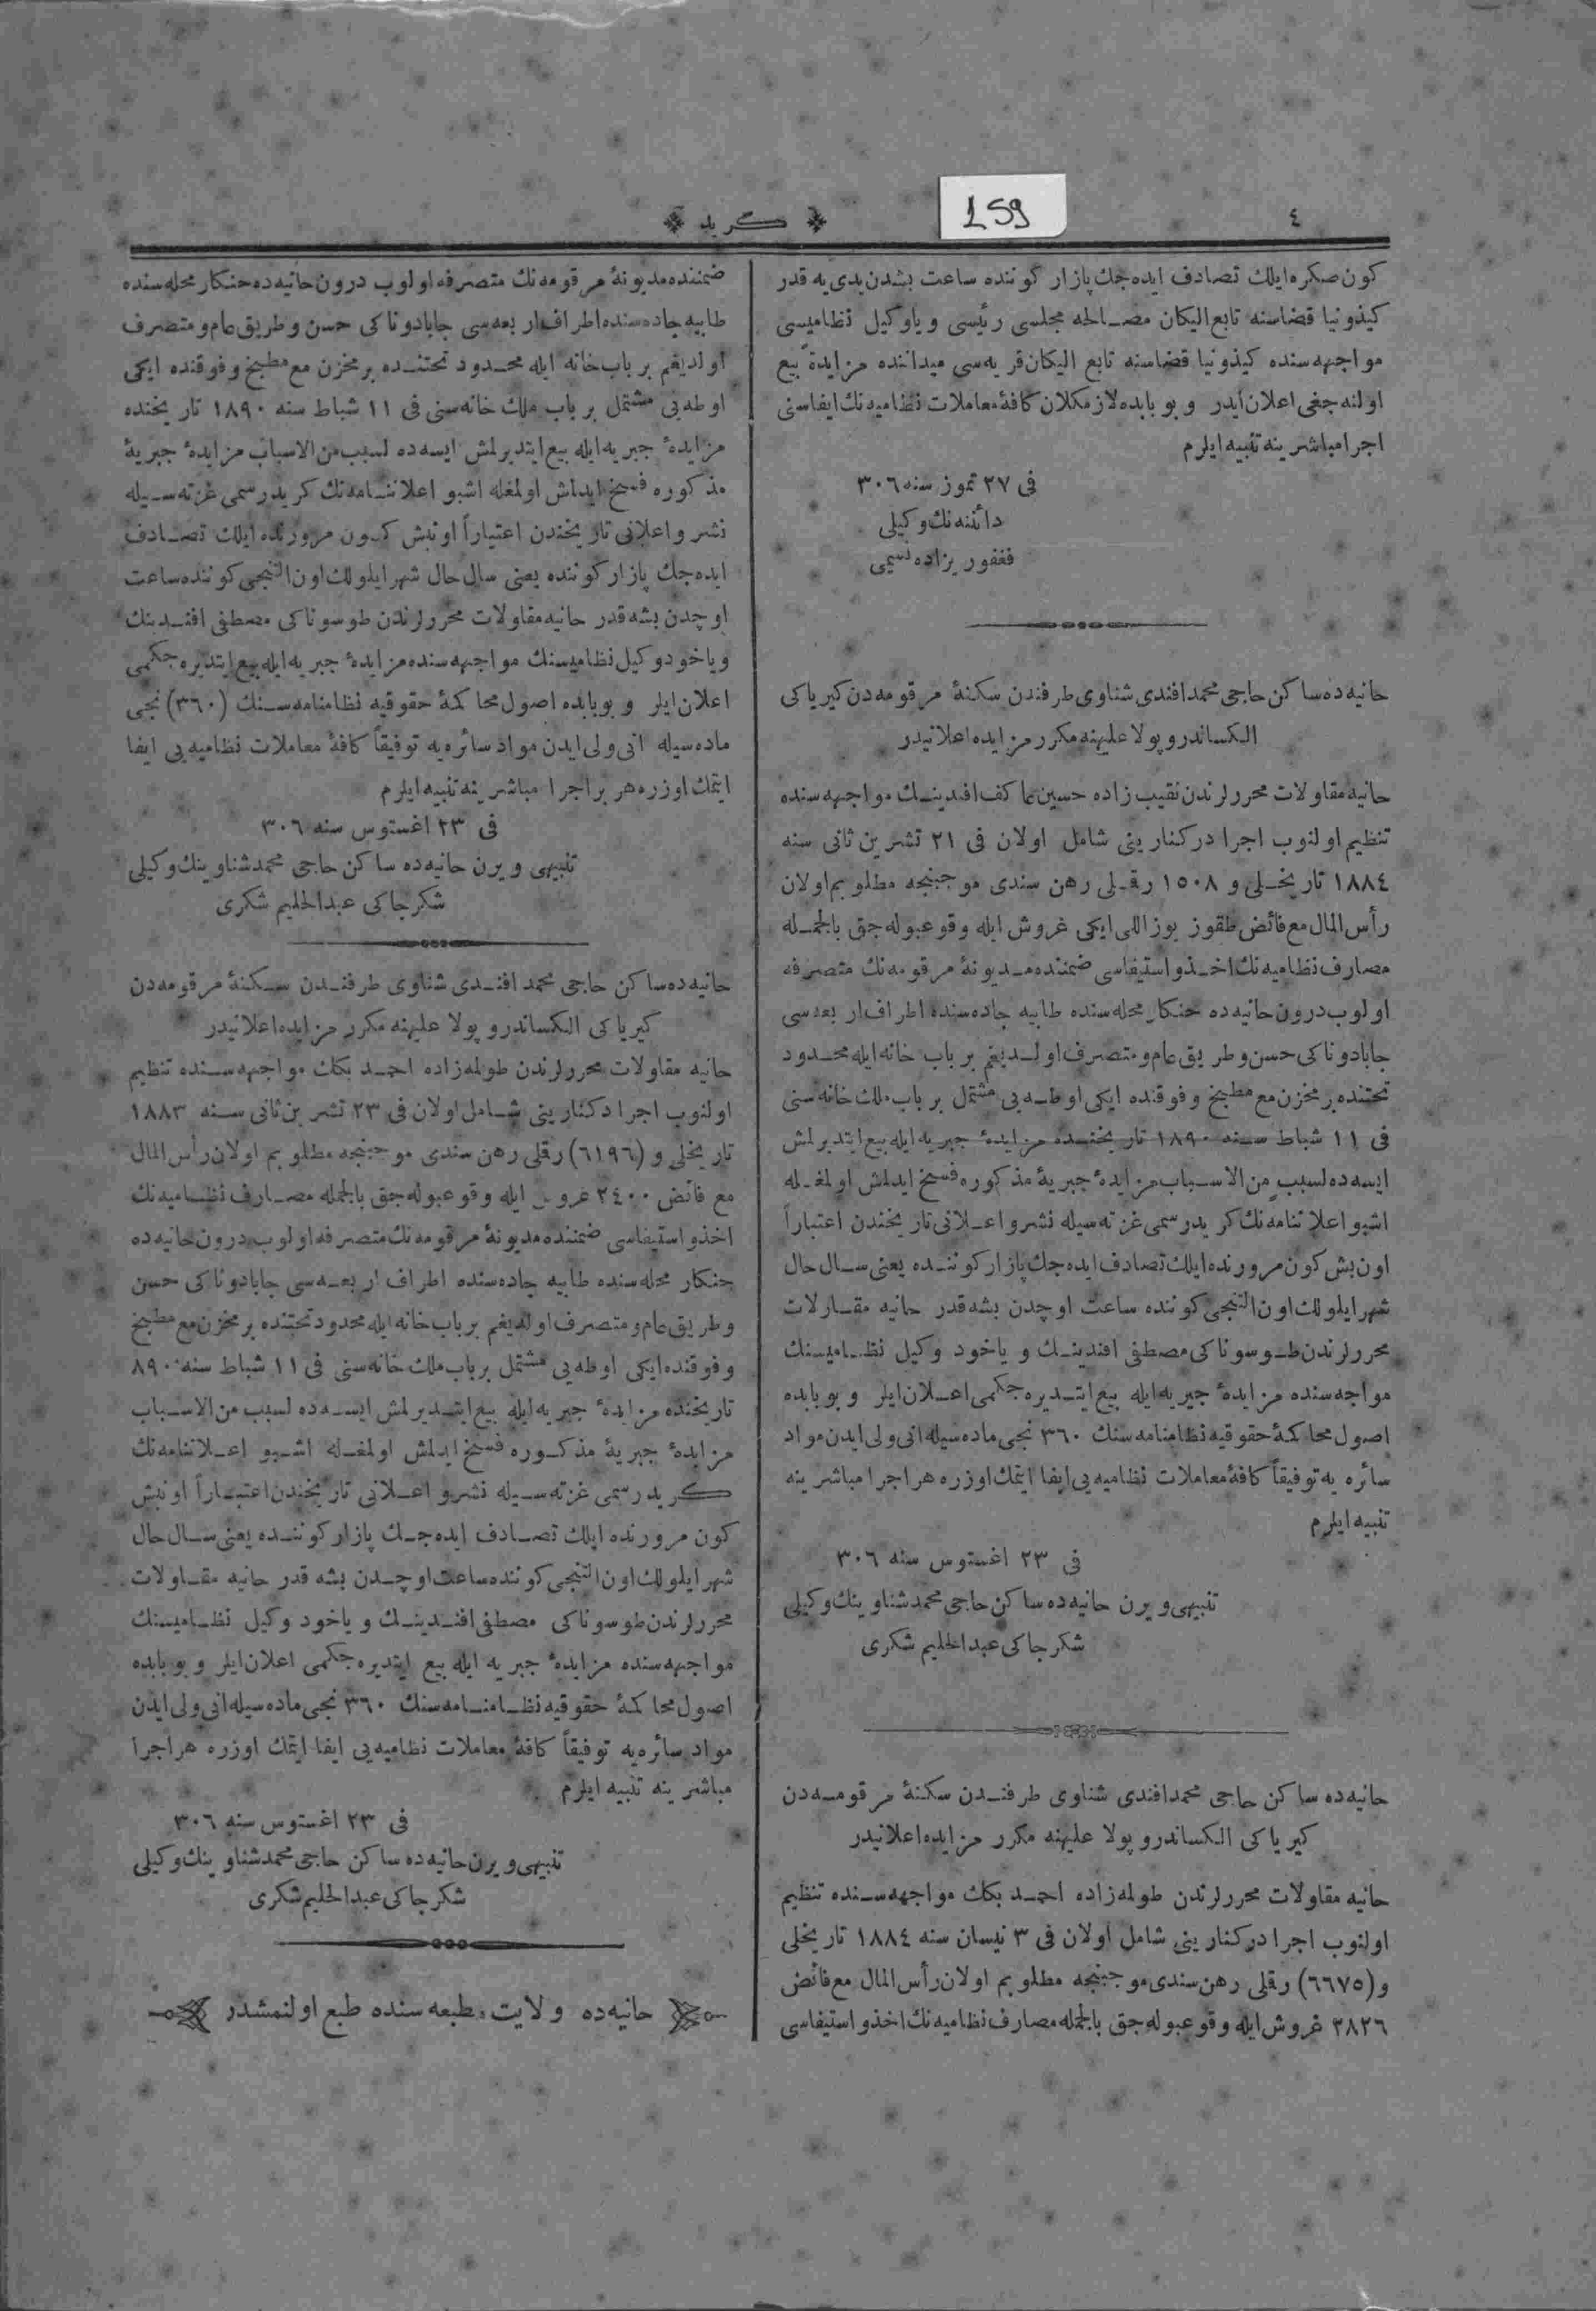 ٤
159
﴿ كريد ﴾
كون صكره ايلك تصادف ايده‌جك پازار كوننده ساعت بشدن يدى يه قدر
كيذونيا قضاسنه تابع اليكان مصالحه مجلسى رئيسى و ياوكيل نظاميسى
مواجهه‌سنده كيذونيا قضاسنه تابع اليكان قريه‌سى ميداننده مزايدةً بيع
اولنه‌جغى اعلان ايدر و بو بابده لازمكلان كافهٔ معاملات نظاميه‌نك ايفاسنى
اجرا مباشرينه تنبيه ايلرم
فى ٢٧ تموز سنه ٣٠٦
دائنه‌نك وكيلى
فغفور يزاده نسيمى
حانيه‌ده ساكن حاجى محمد افندى شناوى طرفندن سكنهٔ مرقومه‌دن كيرياكى
الكساندروپولا عليهنه مكرر مزايده اعلانيدر
حانيه مقاولات محررلرندن نقيب زاده حسين عاكف افندينك مواجهه‌سنده
تنظيم اولنوب اجرا دركنارينى شامل اولان فى ٢١ تشرين ثانى سنه
١٨٨٤ تاريخلى و ١٥٠٨ رقملى رهن سندى موجبنجه مطلوبم اولان
رأس المال مع فائض طقوز يوز اللى ايكى غروش ايله وقوعبوله‌جق بالجمله
مصارف نظاميه‌نك اخذ و استيفاسى ضمننده مديونهٔ مرقومه‌نك متصرفه
اولوب درون حانيه‌ده حنكار محله‌سنده طابيه جاده‌سنده اطراف اربعه‌سى
جابادوناكى حسن و طريق عام و متصرف اولديغم بر باب خانه ايله محدود
تحتنده بر مخزن مع مطبخ و فوقنده ايكى اوطه‌يى مشتمل بر باب ملك خانه‌سنى
فى ١١ شباط سنه ١٨٩٠ تاريخنده مزايدهٔ جبريه ايله بيع ايتديرلمش
ايسه‌ده لسبب من الاسباب مزايدهٔ جبريهٔ مذكوره فسخ ايدلمش اولمغله
اشبو اعلاننامه‌نك كريد رسمى غزته‌سيله نشر و اعلانى تاريخندن اعتباراً
اون بش كون مرورنده ايلك تصادف ايده‌جك پازار كوننده يعنى سال حال
شهر ايلولك اون التنجى كوننده ساعت اوچدن بشه قدر حانيه مقاولات
محررلرندن طوسوناكى مصطفى افندينك و ياخود وكيل نظاميسنك
مواجهه‌سنده مزايدهٔ جبريه ايله بيع ايتديره‌جكمى اعلان ايلر و بو بابده
اصول محاكمهٔ حقوقيه نظامنامه‌سنك ٣٦٠ نجى ماده‌سيله انى ولى ايدن مواد
سائره يه توفيقاً كافهٔ معاملات نظاميه‌يى ايفا ايتمك اوزره هر اجرا مباشرينه
تنبيه ايلرم
فى ٢٣ اغستوس سنه ٣٠٦
تنبيهى ويرن حانيه‌ده ساكن حاجى محمد شناوينك وكيلى
شكرجاكى عبدالحليم شكرى
حانيه‌ده ساكن حاجى محمد افندى شناوى طرفندن سكنهٔ مرقومه‌دن
كيرياكى الكساندروپولا عليهنه مكرر مزايده اعلانيدر
حانيه مقاولات محررلرندن طولمه‌زاده احمد بكك مواجهه‌سنده تنظيم
اولنوب اجرا دركنارينى شامل اولان فى ٣ نيسان سنه ١٨٨٤ تاريخلى
و (٦٦٧٥) رقملى رهن سندى موجبنجه مطلوبم اولان رأس المال مع فائض
٢٨٢٦ غروش ايله وقوعبوله‌جق بالجمله مصارف نظاميه‌نك اخذ و استيفاسى
ضمننده مديونهٔ مرقومه‌نك متصرفه اولوب درون حانيه‌ده حنكار محله‌سنده
طابيه جاده‌سنده اطراف اربعه‌سى جابادوناكى حسن و طريق عام و متصرف
اولديغم بر باب خانه ايله محدود تحتنده بر مخزن مع مطبخ و فوقنده ايكى
اوطه‌يى مشتمل بر باب ملك خانه‌سنى فى ١١ شباط سنه ١٨٩٠ تاريخنده
مزايدهٔ جبريه ايله بيع ايتديرلمش ايسه‌ده لسبب من الاسباب مزايدهٔ جبريهٔ
مذكوره فسخ ايدلمش اولمغله اشبو اعلاننامه‌نك كريد رسمى غزته‌سيله
نشر و اعلانى تاريخندن اعتباراً اونبش كون مرورنده ايلك تصادف
ايده‌جك پازار كوننده يعنى سال حال شهر ايلولك اون التنجى كوننده ساعت
اوچدن بشه قدر حانيه مقاولات محررلرندن طوسوناكى مصطفى افندينك
و ياخود وكيل نظاميسنك مواجهه‌سنده مزايدهٔ جبريه ايله بيع ايتديره‌جكمى
اعلان ايلر و بو بابده اصول محاكمهٔ حقوقيه نظامنامه‌سنك (٣٦٠) نجى
ماده‌سيله انى ولى ايدن مواد سائره‌يه توفيقاً كافهٔ معاملات نظاميه‌يى ايفا
ايتمك اوزره هر بر اجرا مباشرينه تنبيه ايلرم
فى ٢٣ اغستوس سنه ٣٠٦
تنبيهى ويرن حانيه‌ده ساكن حاجى محمد شناوينك وكيلى
شكرجاكى عبدالحليم شكرى
حانيه‌ده ساكن حاجى محمد افندى شناوى طرفندن سكنهٔ مرقومه‌دن
كيرياكى الكساندروپولا عليهنه مكرر مزايده اعلانيدر
حانيه مقاولات محررلرندن طولمه‌زاده احمد بكك مواجهه‌سنده تنظيم
اولنوب اجرا دكنارينى شامل اولان فى ٢٣ تشرين ثانى سنه ١٨٨٣
تاريخلى و (٦١٩٦) رقملى رهن سندى موجبنجه مطلوبم اولان رأس المال
مع فائض ٢٤٠٠ غروش ايله وقوعبوله‌جق بالجمله مصارف نظاميه‌نك
اخذ و استيفاسى ضمننده مديونهٔ مرقومه‌نك متصرفه اولوب درون حانيه‌ده
حنكار محله‌سنده طابيه جاده‌سنده اطراف اربعه‌سى جابادوناكى حسن
و طريق عام و متصرف اولديغم بر باب خانه ايله محدود تحتنده بر مخزن مع مطبخ
و فوقنده ايكى اوطه‌يى مشتمل بر باب ملك خانه‌سنى فى ١١ شباط سنه ٨٩٠
تاريخنده مزايدهٔ جبريه ايله بيع ايتديرلمش ايسه‌ده لسبب من الاسباب
مزايدهٔ جبريهٔ مذكوره فسخ ايدلمش اولمغله اشبو اعلاننامه‌نك
كريد رسمى غزته‌سيله نشر و اعلانى تاريخندن اعتباراً اونبش
كون مرورنده ايلك تصادف ايده‌جك پازار كوننده يعنى سال حال
شهر ايلولك اون التنجى كوننده ساعت اوچدن بشه قدر حانيه مقاولات
محررلرندن طوسوناكى مصطفى افندينك و ياخود وكيل نظاميسنك
مواجهه‌سنده مزايدهٔ جبريه ايله بيع ايتديره‌جكمى اعلان ايلر و بو بابده
اصول محاكمهٔ حقوقيه نظامنامه‌سنك ٣٦٠ نجى ماده‌سيله انى ولى ايدن
مواد سائره‌يه توفيقاً كافهٔ معاملات نظاميه‌يى ايفا ايتمك اوزره هر اجرا
مباشرينه تنبيه ايلرم
فى ٢٣ اغستوس سنه ٣٠٦
تنبيهى ويرن حانيه‌ده ساكن حاجى محمد شناوينك وكيلى
شكرجاكى عبدالحليم شكرى
حانيه‌ده ولايت مطبعه‌سنده طبع اولنمشدر